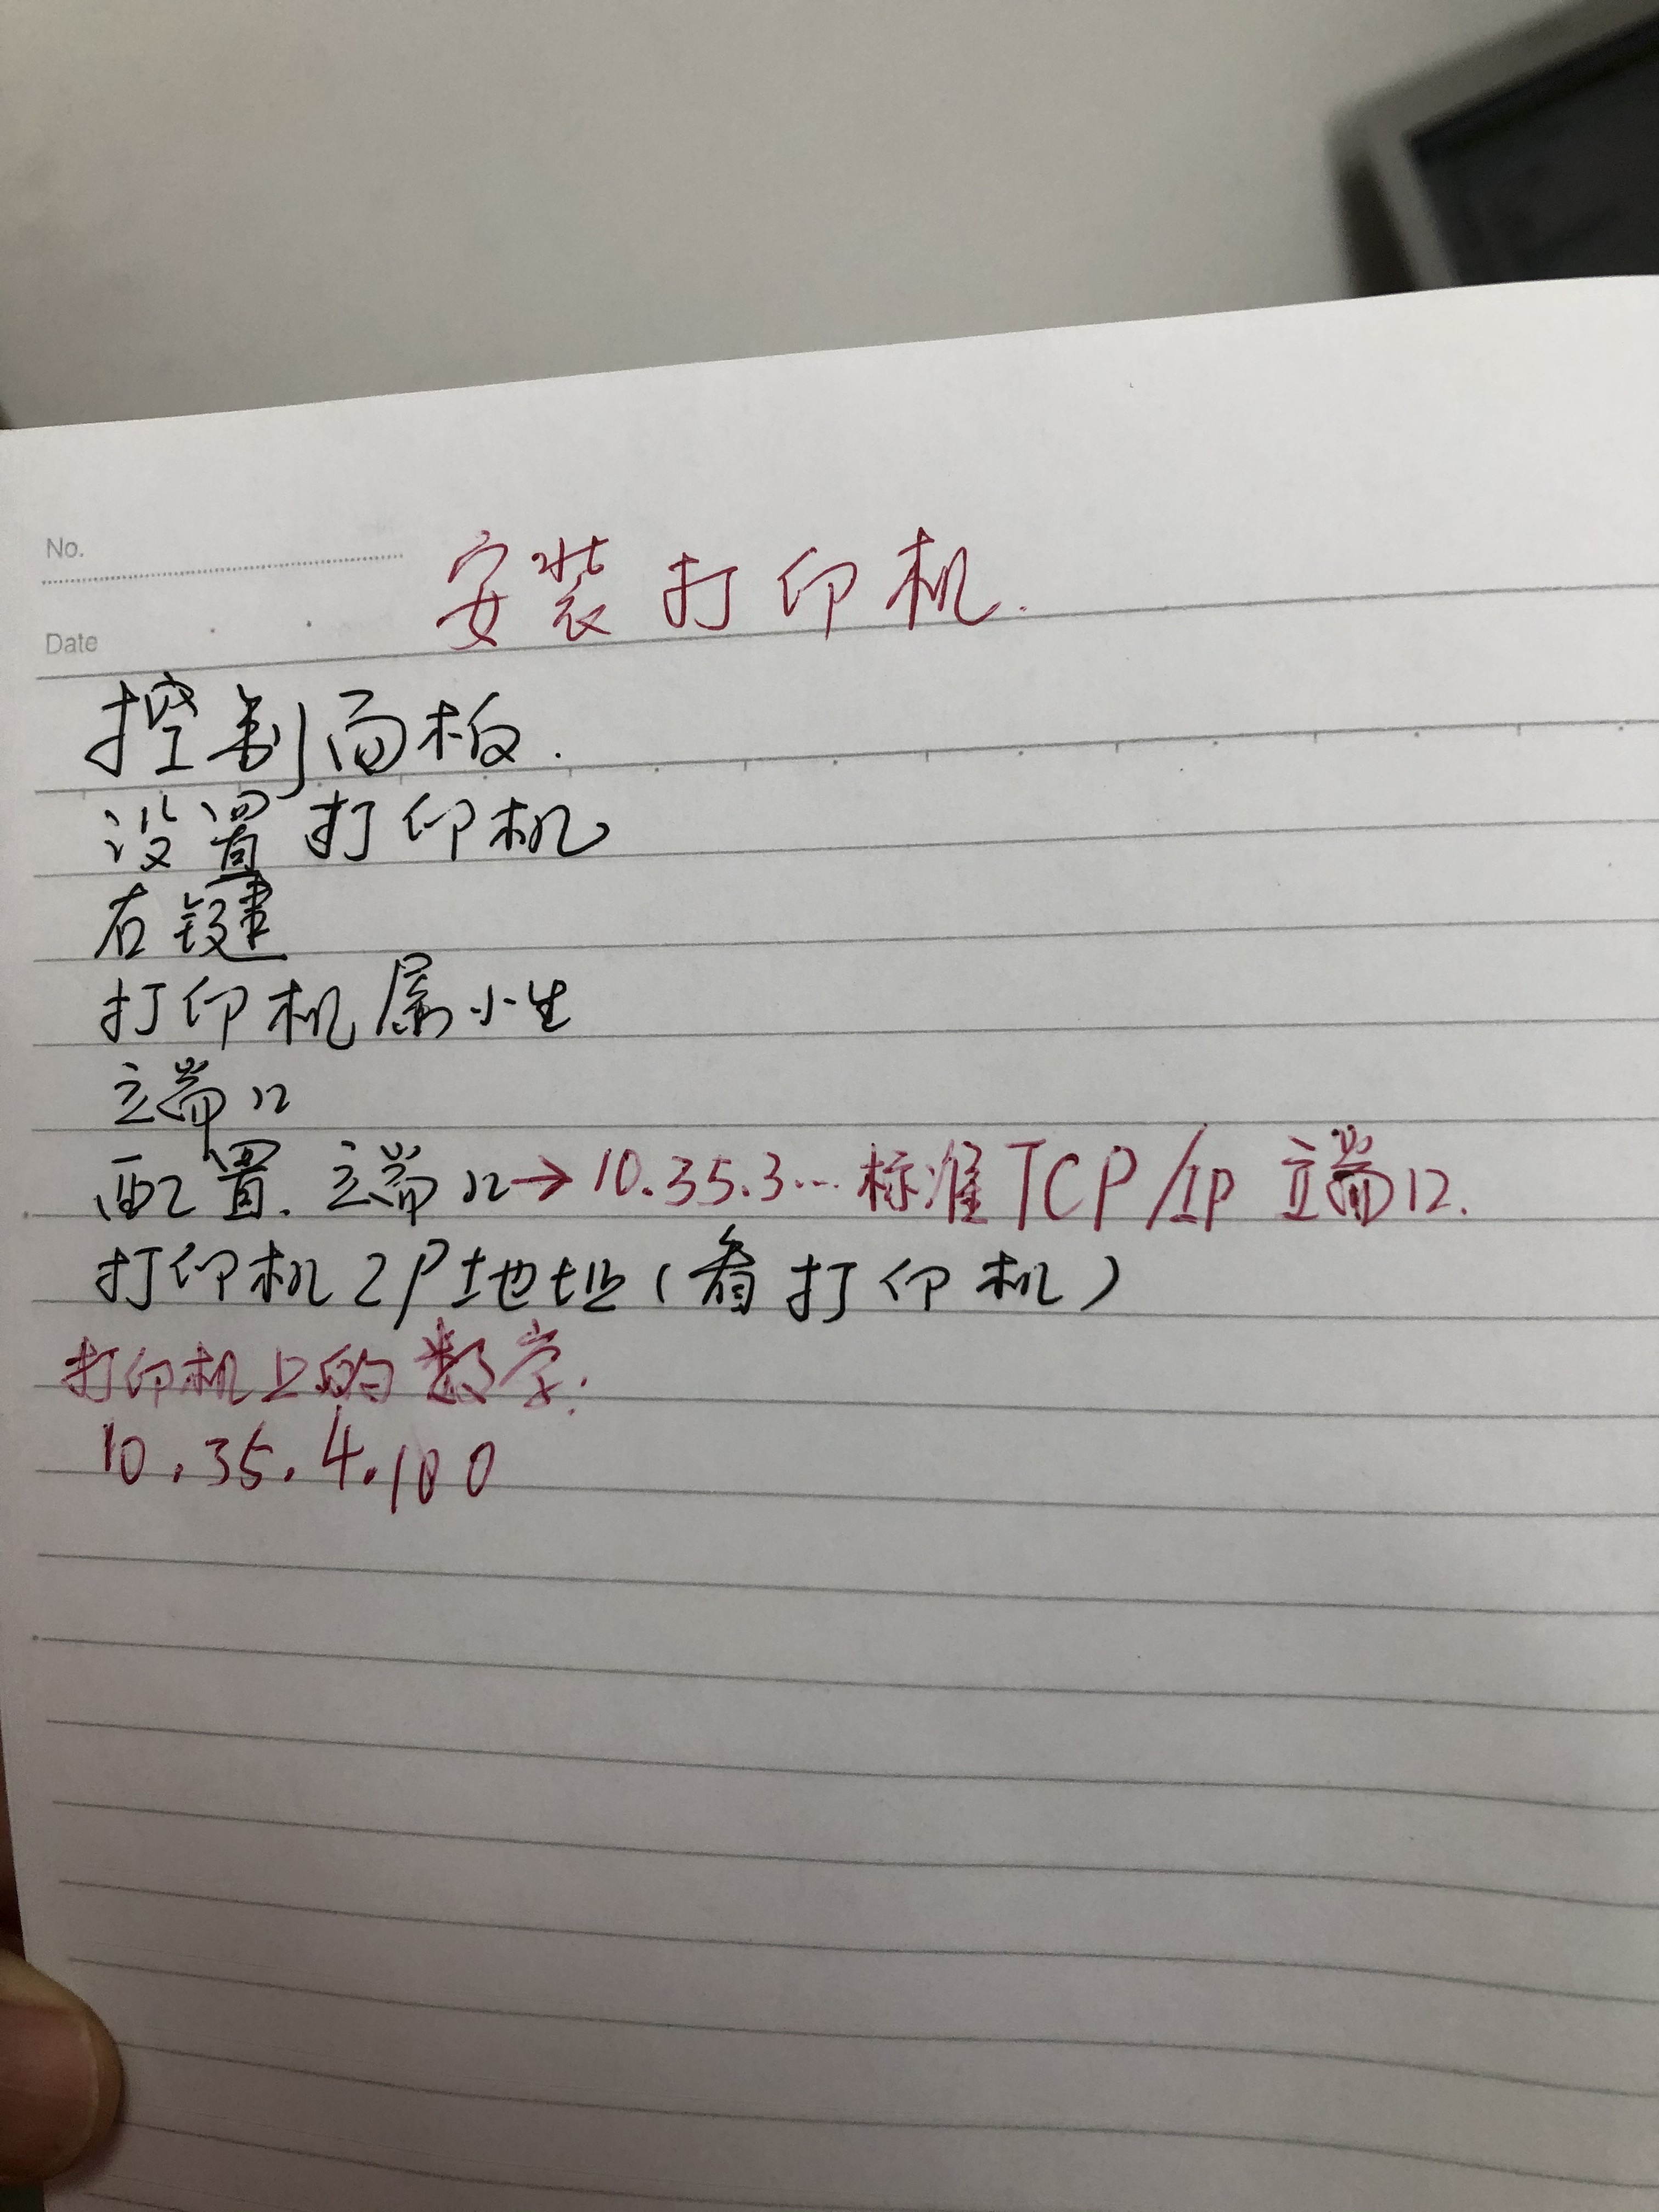 No.
安装打印机.
Date
控制面板.
设置打印机
右键
打印机属性
端口
配置.端口→10.35.3…标准TCP/IP 端口.
打印机IP地址(看打印机)
打印机上的数字:
10.35.4.100